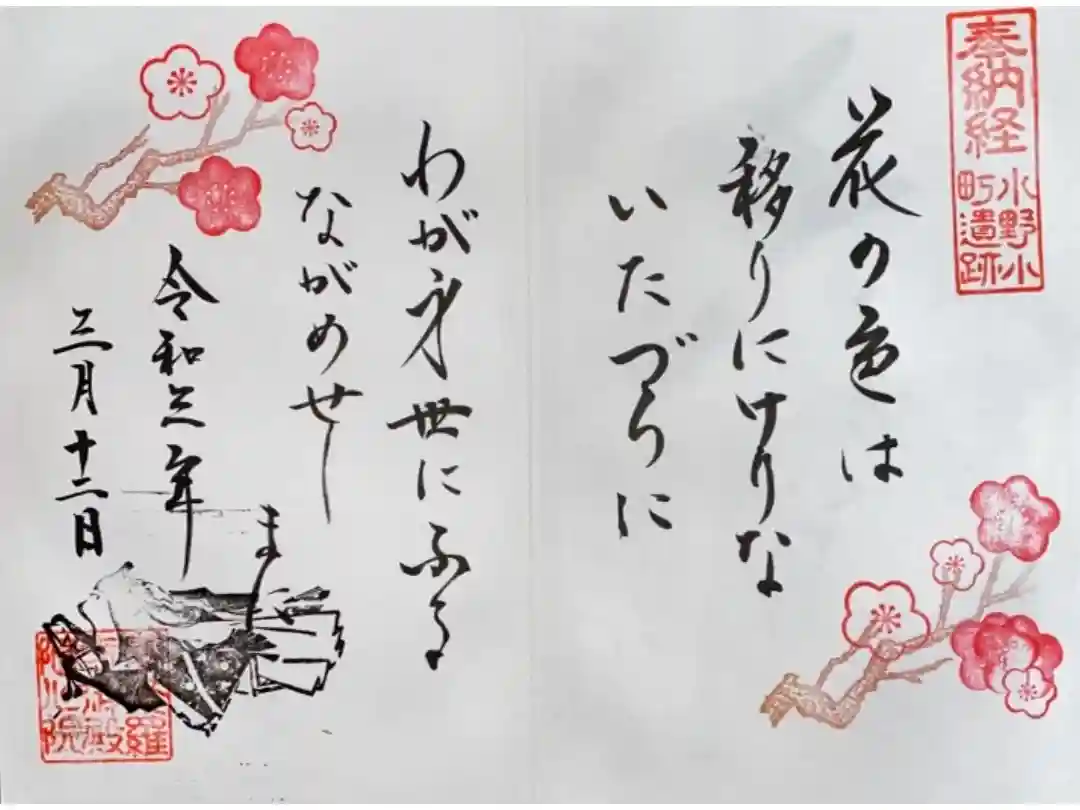 奉納経
小野小
町遺跡
花の色は
移りにけりな
いたづらに
わが身世にふる
ながめせし
まに
令和三年
三月十二日
随心院